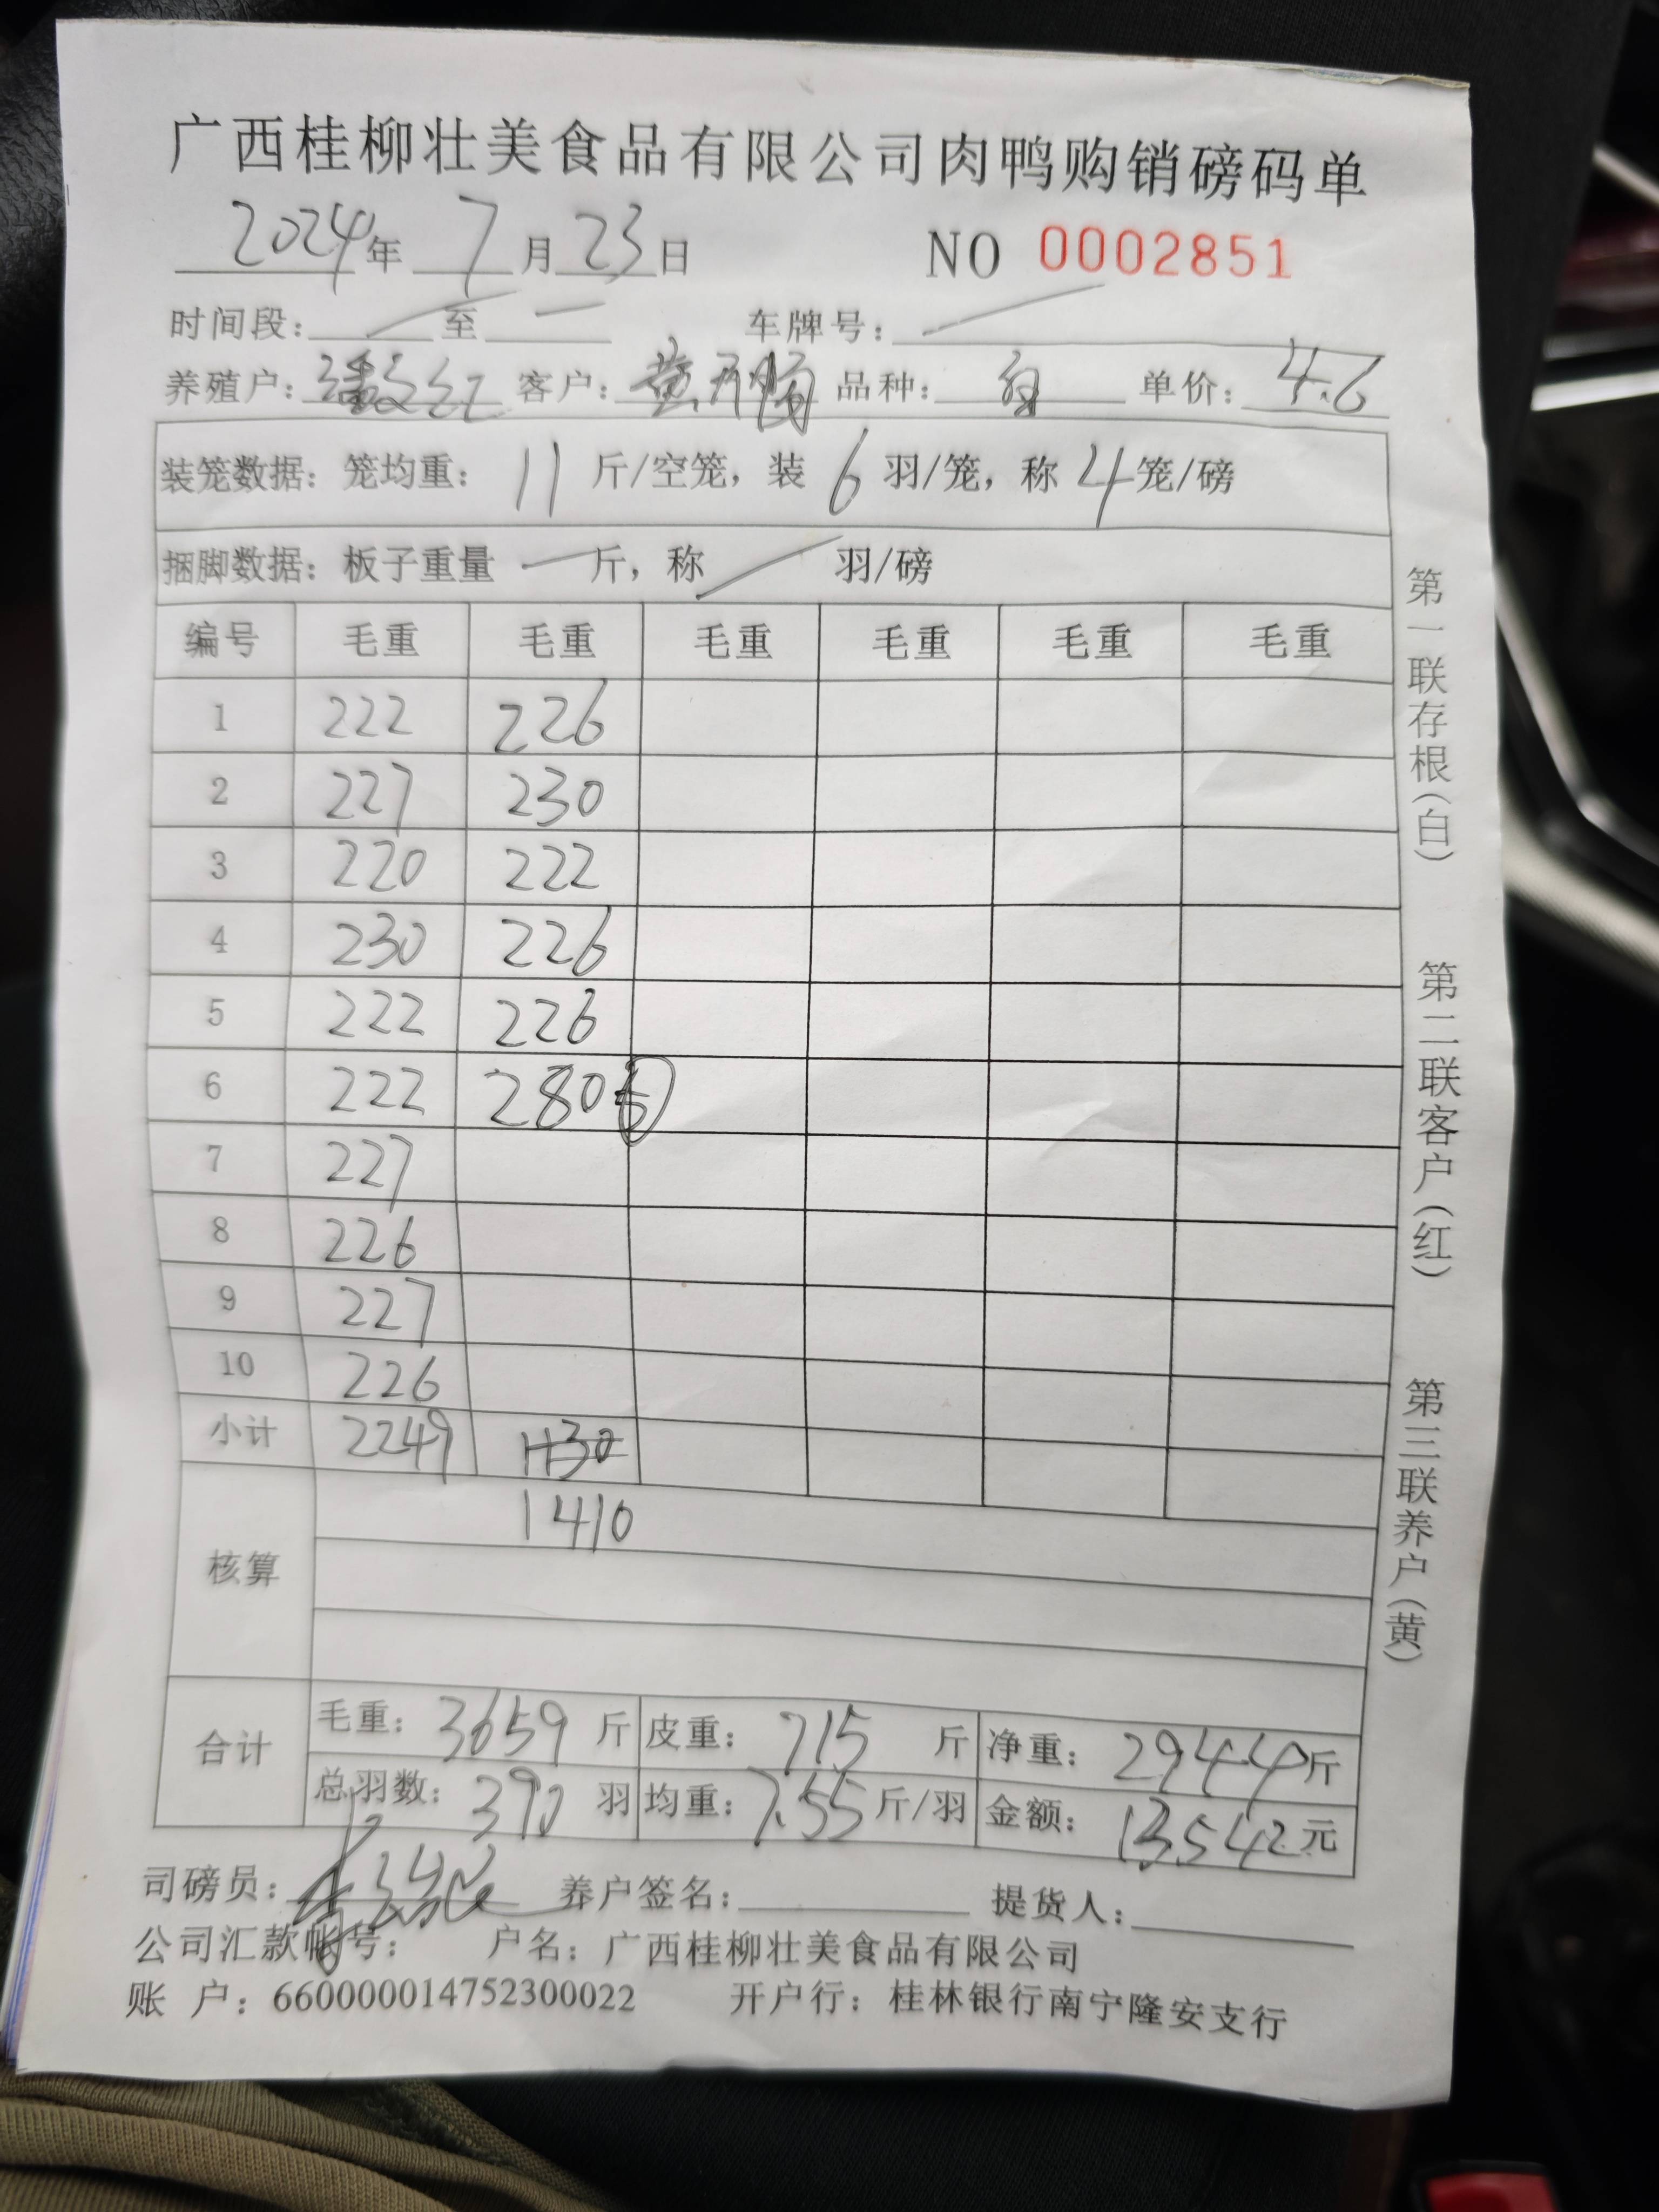 广西桂柳壮美食品有限公司肉鸭购销磅码单
2024年 7月23日 NO 0002851
时间段: 至 车牌号:
养殖户: 客户: 品种: 单价: 4.6
装笼数据: 笼均重: 11 斤/空笼, 装 6 羽/笼, 称 4 笼/磅
捆脚数据: 板子重量 斤, 称 羽/磅
编号 毛重 毛重 毛重 毛重 毛重 毛重
1 222 226
2 227 230
3 220 222
4 230 226
5 222 226
6 222 280 5
7 227
8 226
9 227
10 226
小计 2249 1130
1410
核算
合计
毛重: 3659 斤 皮重: 715 斤 净重: 2944 斤
总羽数: 390 羽 均重: 7.55 斤/羽 金额: 13542 元
司磅员: 养户签名: 提货人:
公司汇款帐号: 户名: 广西桂柳壮美食品有限公司
账 户: 660000014752300022 开户行: 桂林银行南宁隆安支行
第一联存根(白)
第二联客户(红)
第三联养户(黄)